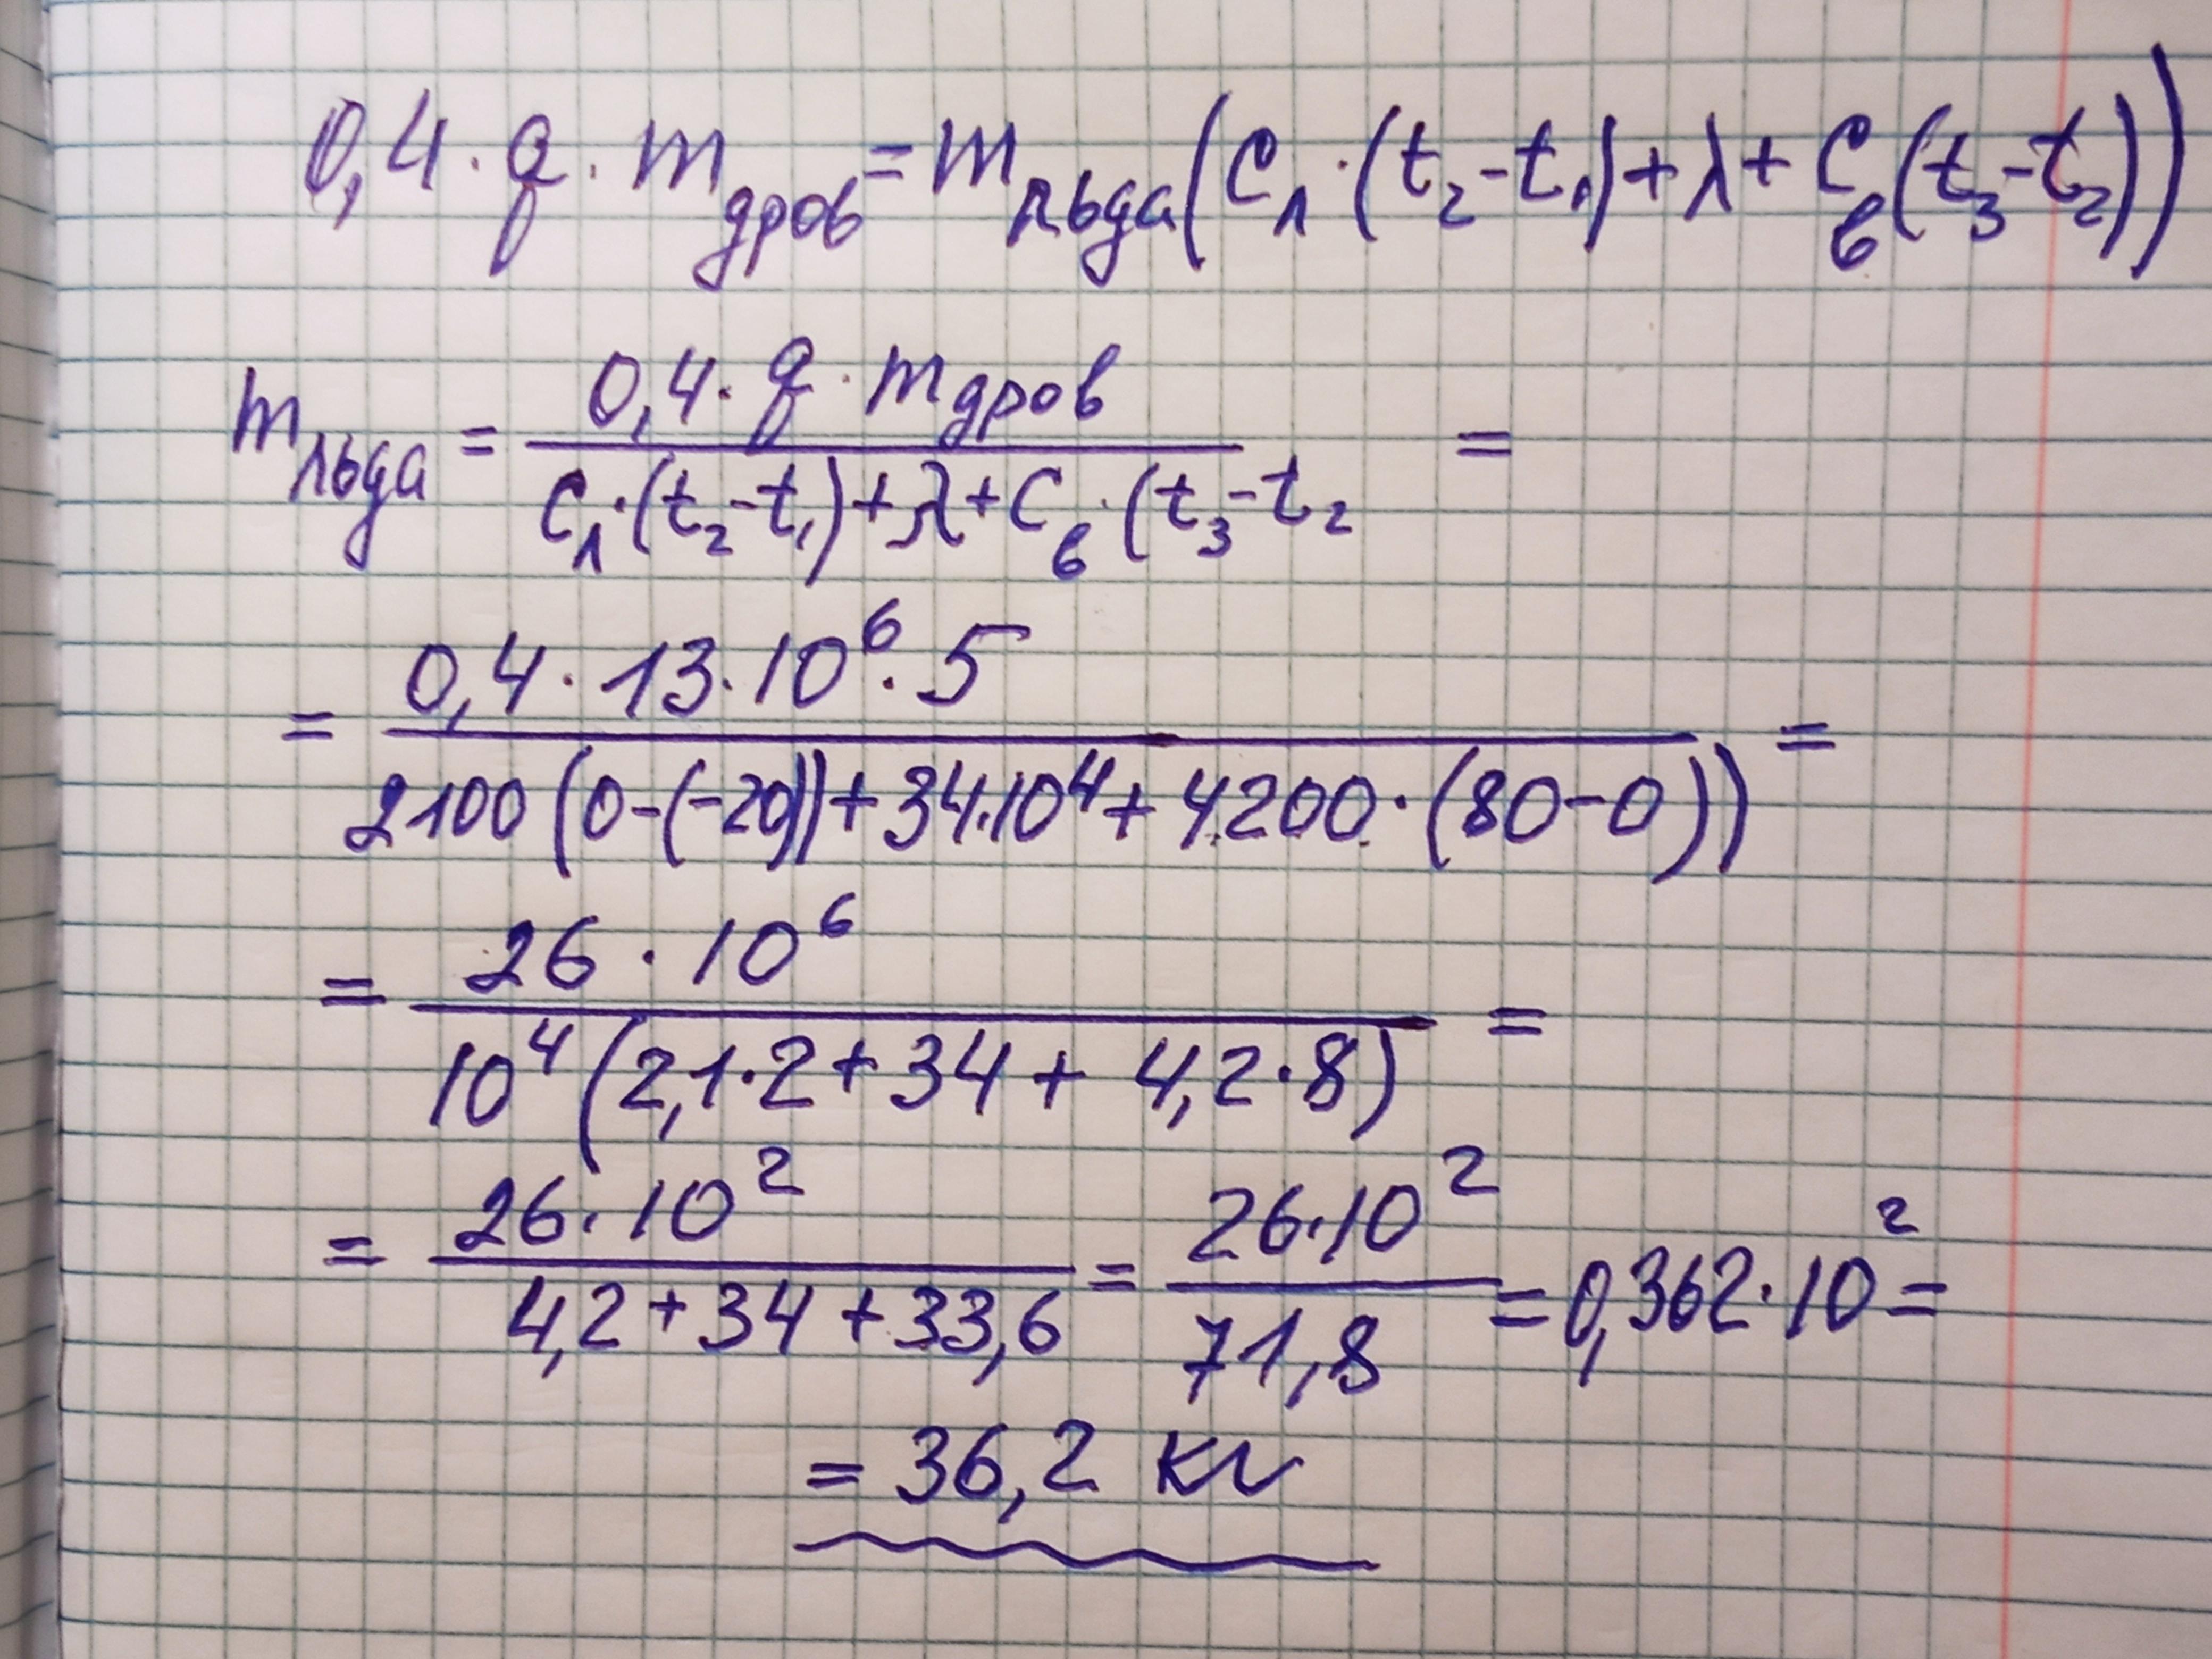 0,4 · q · m_дров = m_льда (c_л · (t₂ - t₁) + λ + c_в (t₃ - t₂))
m_льда = (0,4 · q · m_дров) / (c_л · (t₂ - t₁) + λ + c_в · (t₃ - t₂ =
= (0,4 · 13 · 10⁶ · 5) / (2100 (0 - (-20)) + 34 · 10⁴ + 4200 · (80 - 0)) ) =
= (26 · 10⁶) / (10⁴ (2,1 · 2 + 34 + 4,2 · 8)) =
= (26 · 10²) / (4,2 + 34 + 33,6) = (26 · 10²) / (71,8) = 0,362 · 10² =
= 36,2 кг